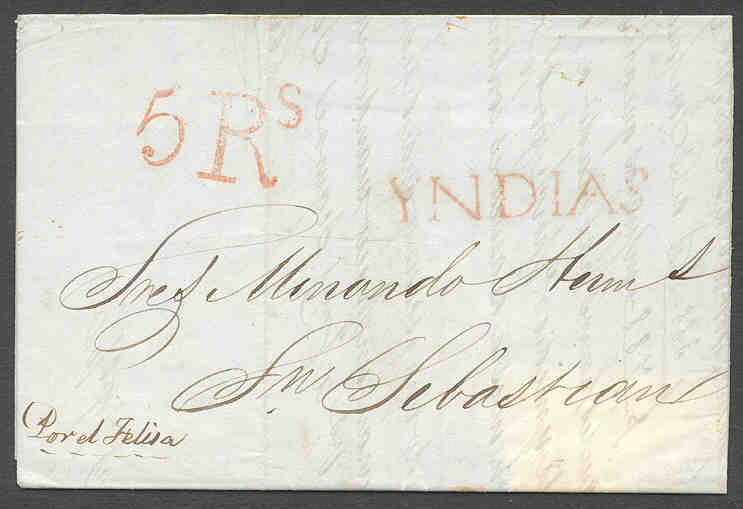 5 Rs
YNDIAS
Sres Minondo Herms
Sn Sebastian
Por el Felisa